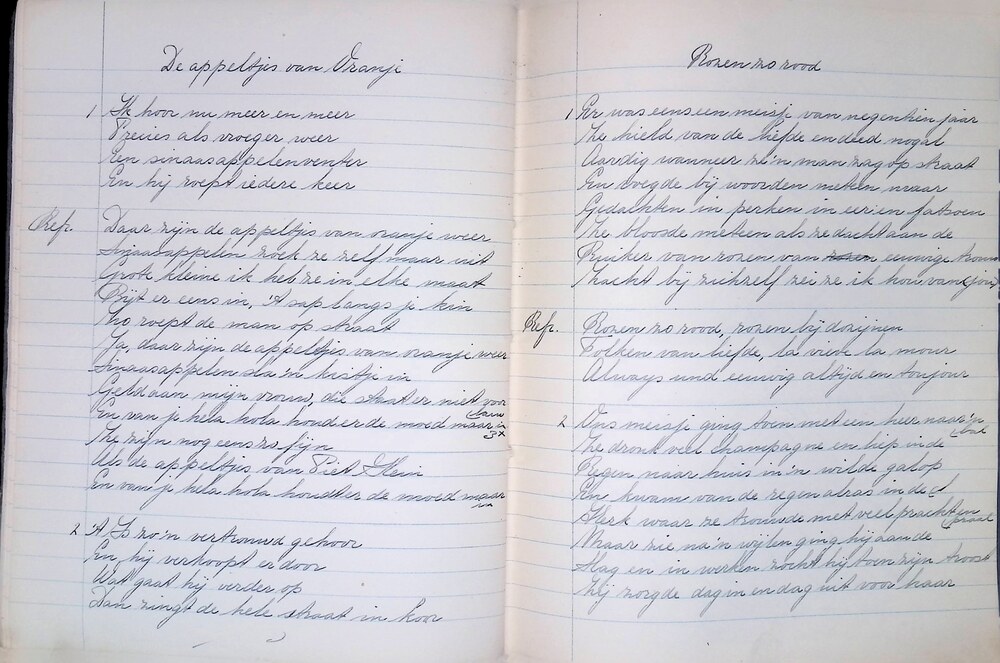 De appeltjes van Oranje
1 Ik hoor nu meer en meer
Precies als vroeger weer
Een sinaasappelenventer
En hij roept iedere keer
Refr. Daar zijn de appeltjes van oranje weer
Sinaasappelen zoek ze zelf maar uit
Grote kleine ik heb ze in elke maat
Bijt er eens in, 't sap langs je kin
Zo roept de man op straat
Ja, daar zijn de appeltjes van oranje weer
Sinaasappelen sla 'n kistje in
Geld aan mijn vrouw, die staat er niet voor
En van je hela hola houd er de moed maar in
3x
Ze zijn nog eens zo fijn
Als de appeltjes van Piet Hein
En van je hela hola houdt er de moed maar
in
2 't Is zo'n vertrouwd gehoor
En hij verkoopt er door
Wat gaat hij verder op
Dan zingt de hele straat in koor
Rozen zo rood
1 Er was eens een meisje van negentien jaar
Ze hield van de liefde en deed nogal
Aardig wanneer ze 'n man zag op straat
En voegde bij woorden meteen maar
Gedachten in perken in eer en fatsoen
Ze bloosde meteen als ze dacht aan de
Ruiker van rozen van eeuwige trouw
Zacht bij zichzelf zei ze ik hou van jou
Refr. Rozen zo rood, rozen bij dozijnen
Tolken van liefde, la vieve la mour
Always und eeuwig altijd en toujour
2 Ons meisje ging toen met een heer naar 'n
bal
Ze dronk veel champagne en liep in de
Regen naar huis in 'n wilde galop
En kwam van de regen alras in de
Kerk waar ze trouwde met veel pracht en
praal
Maar zie na 'n wijlen ging hij aan de
Slag en in werken zocht hij toen zijn troost
Hij zorgde dag in en dag uit voor haar